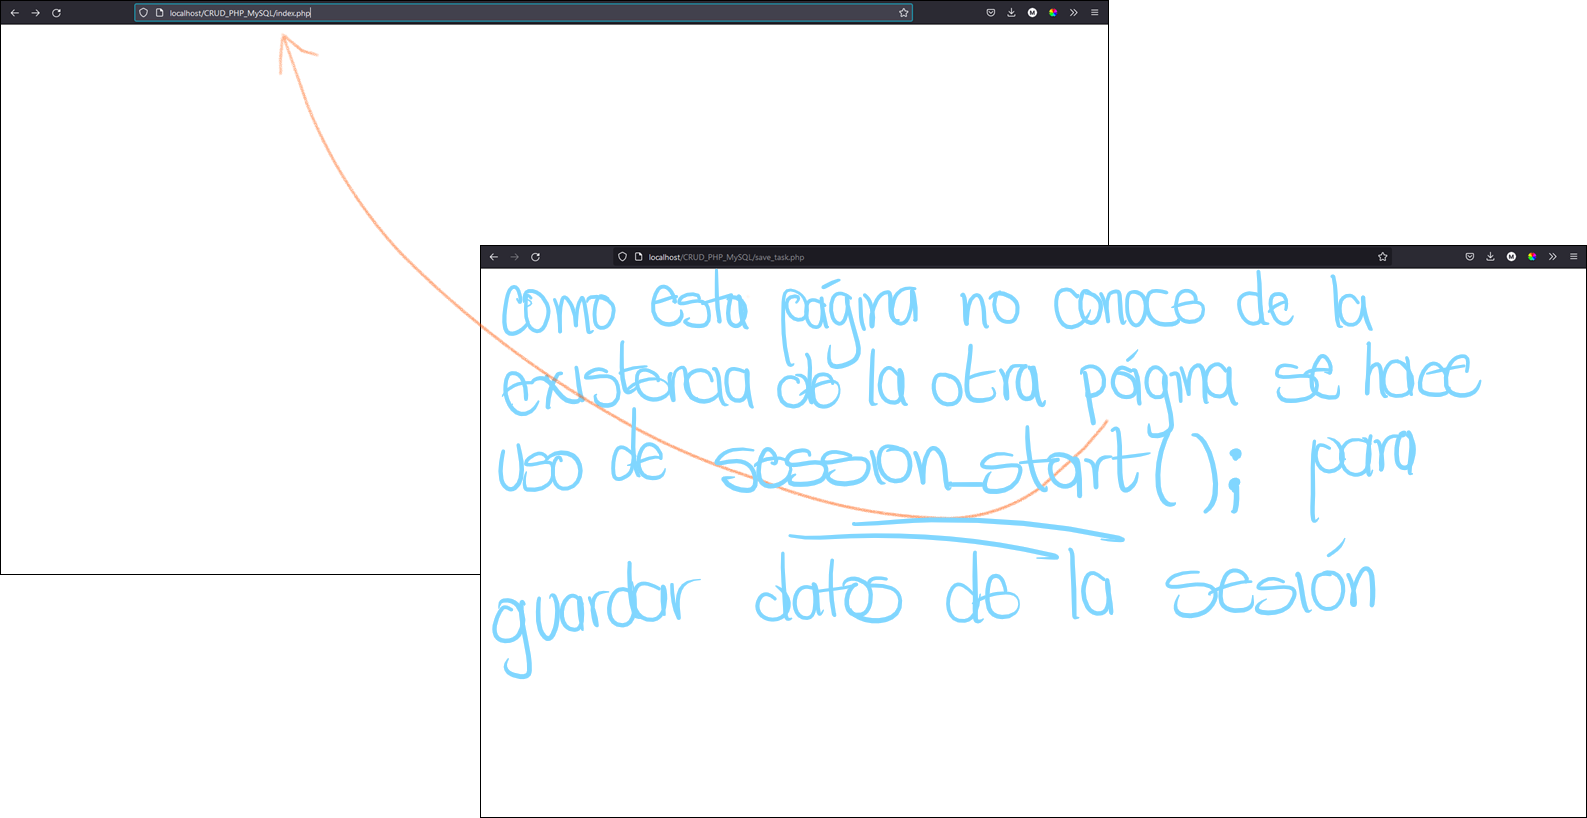 localhost/CRUD_PHP_MySQL/index.php
M
localhost/CRUD_PHP_MySQL/save_task.php
M
como esta página no conoce de la
existencia de la otra página se hace
uso de session_start(); para
guardar datos de la sesión